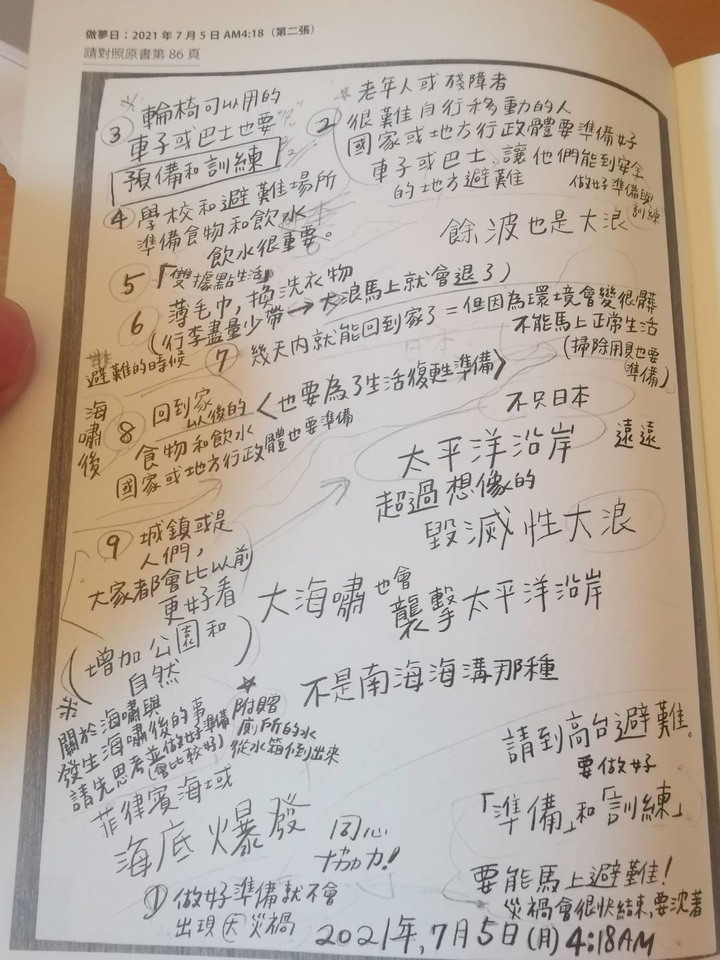 做夢日：2021年7月5日AM4:18（第二張）
請對照原書第86頁
※ 輪椅可以用的
③ 車子或巴士也要
預備和訓練
※ 老年人或殘障者
② 很難自行移動的人
國家或地方行政體要準備好
車子或巴士、讓他們能到安全
的地方避難
做好準備與
訓練
④ 學校和避難場所
準備食物和飲水
飲水很重要。
餘波也是大浪
⑤「雙據點生活」
⑥ 薄毛巾,換洗衣物
(行李盡量少帶→大浪馬上就會退了)
避難的時候
⑦ 幾天內就能回到家了=但因為環境會變很髒
不能馬上正常生活
(掃除用具也要
準備)
海嘯後
⑧ 回到家
以後的
食物和飲水
〈也要為了生活復甦準備〉
國家或地方行政體也要準備
不只日本
太平洋沿岸 遠遠
超過想像的
毀滅性大浪
⑨ 城鎮或是
人們,
大家都會比以前
更好看
(增加公園和
自然)
大海嘯也會
襲擊太平洋沿岸
不是南海海溝那種
※
關於海嘯與
發生海嘯後的事
請先思考並做好準備
(會比較好)
★ 附贈
廁所的水
從水箱倒出來
請到高台避難。
要做好
「準備」和「訓練」
菲律賓海域
海底爆發
同心
協力!
① 做好準備就不會
出現大災禍
要能馬上避難佳!
災禍會很快結束,要沈著
2021年,7月5日(月)4:18AM